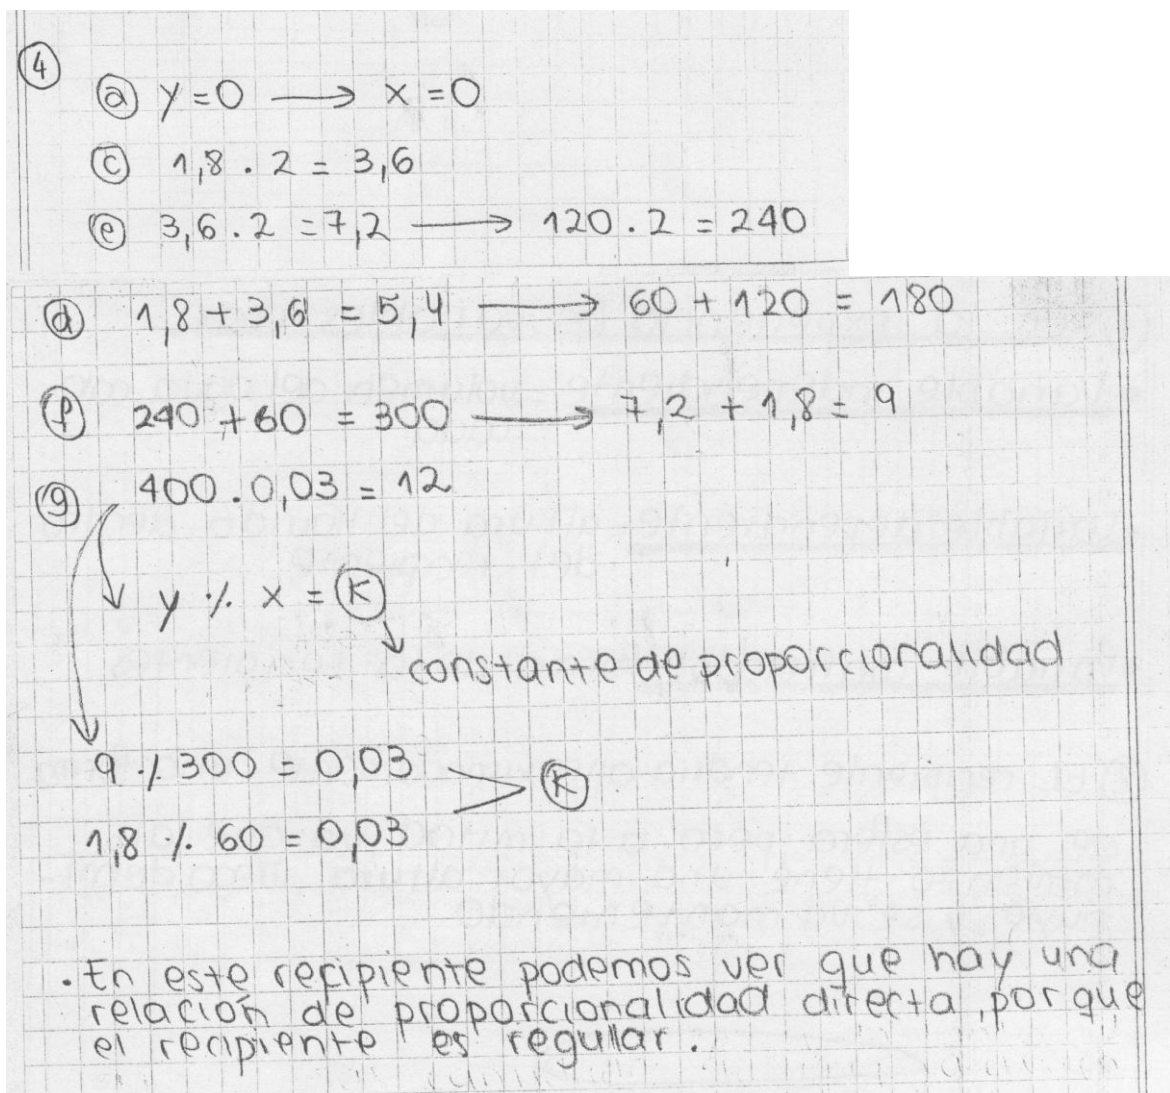 4
a y = 0 → x = 0
c 1,8 . 2 = 3,6
e 3,6 . 2 = 7,2 → 120 . 2 = 240
d 1,8 + 3,6 = 5,4 → 60 + 120 = 180
f 240 + 60 = 300 → 7,2 + 1,8 = 9
g 400 . 0,03 = 12
y ./. x = K
constante de proporcionalidad
9 ./. 300 = 0,03
K
1,8 ./. 60 = 0,03
. En este recipiente podemos ver que hay una
relación de proporcionalidad directa, por que
el recipiente es regular.